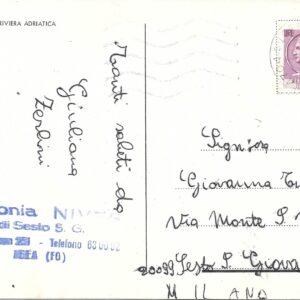 RIVIERA ADRIATICA
Tanti saluti da
Giuliana
Zerbini
onia NIV
di Sesto S. G.
Telefono 63 00 02
(FO)
Sign/ora
Giovanna
Via Monte S.
20099 Sesto S. Giova
MILANO